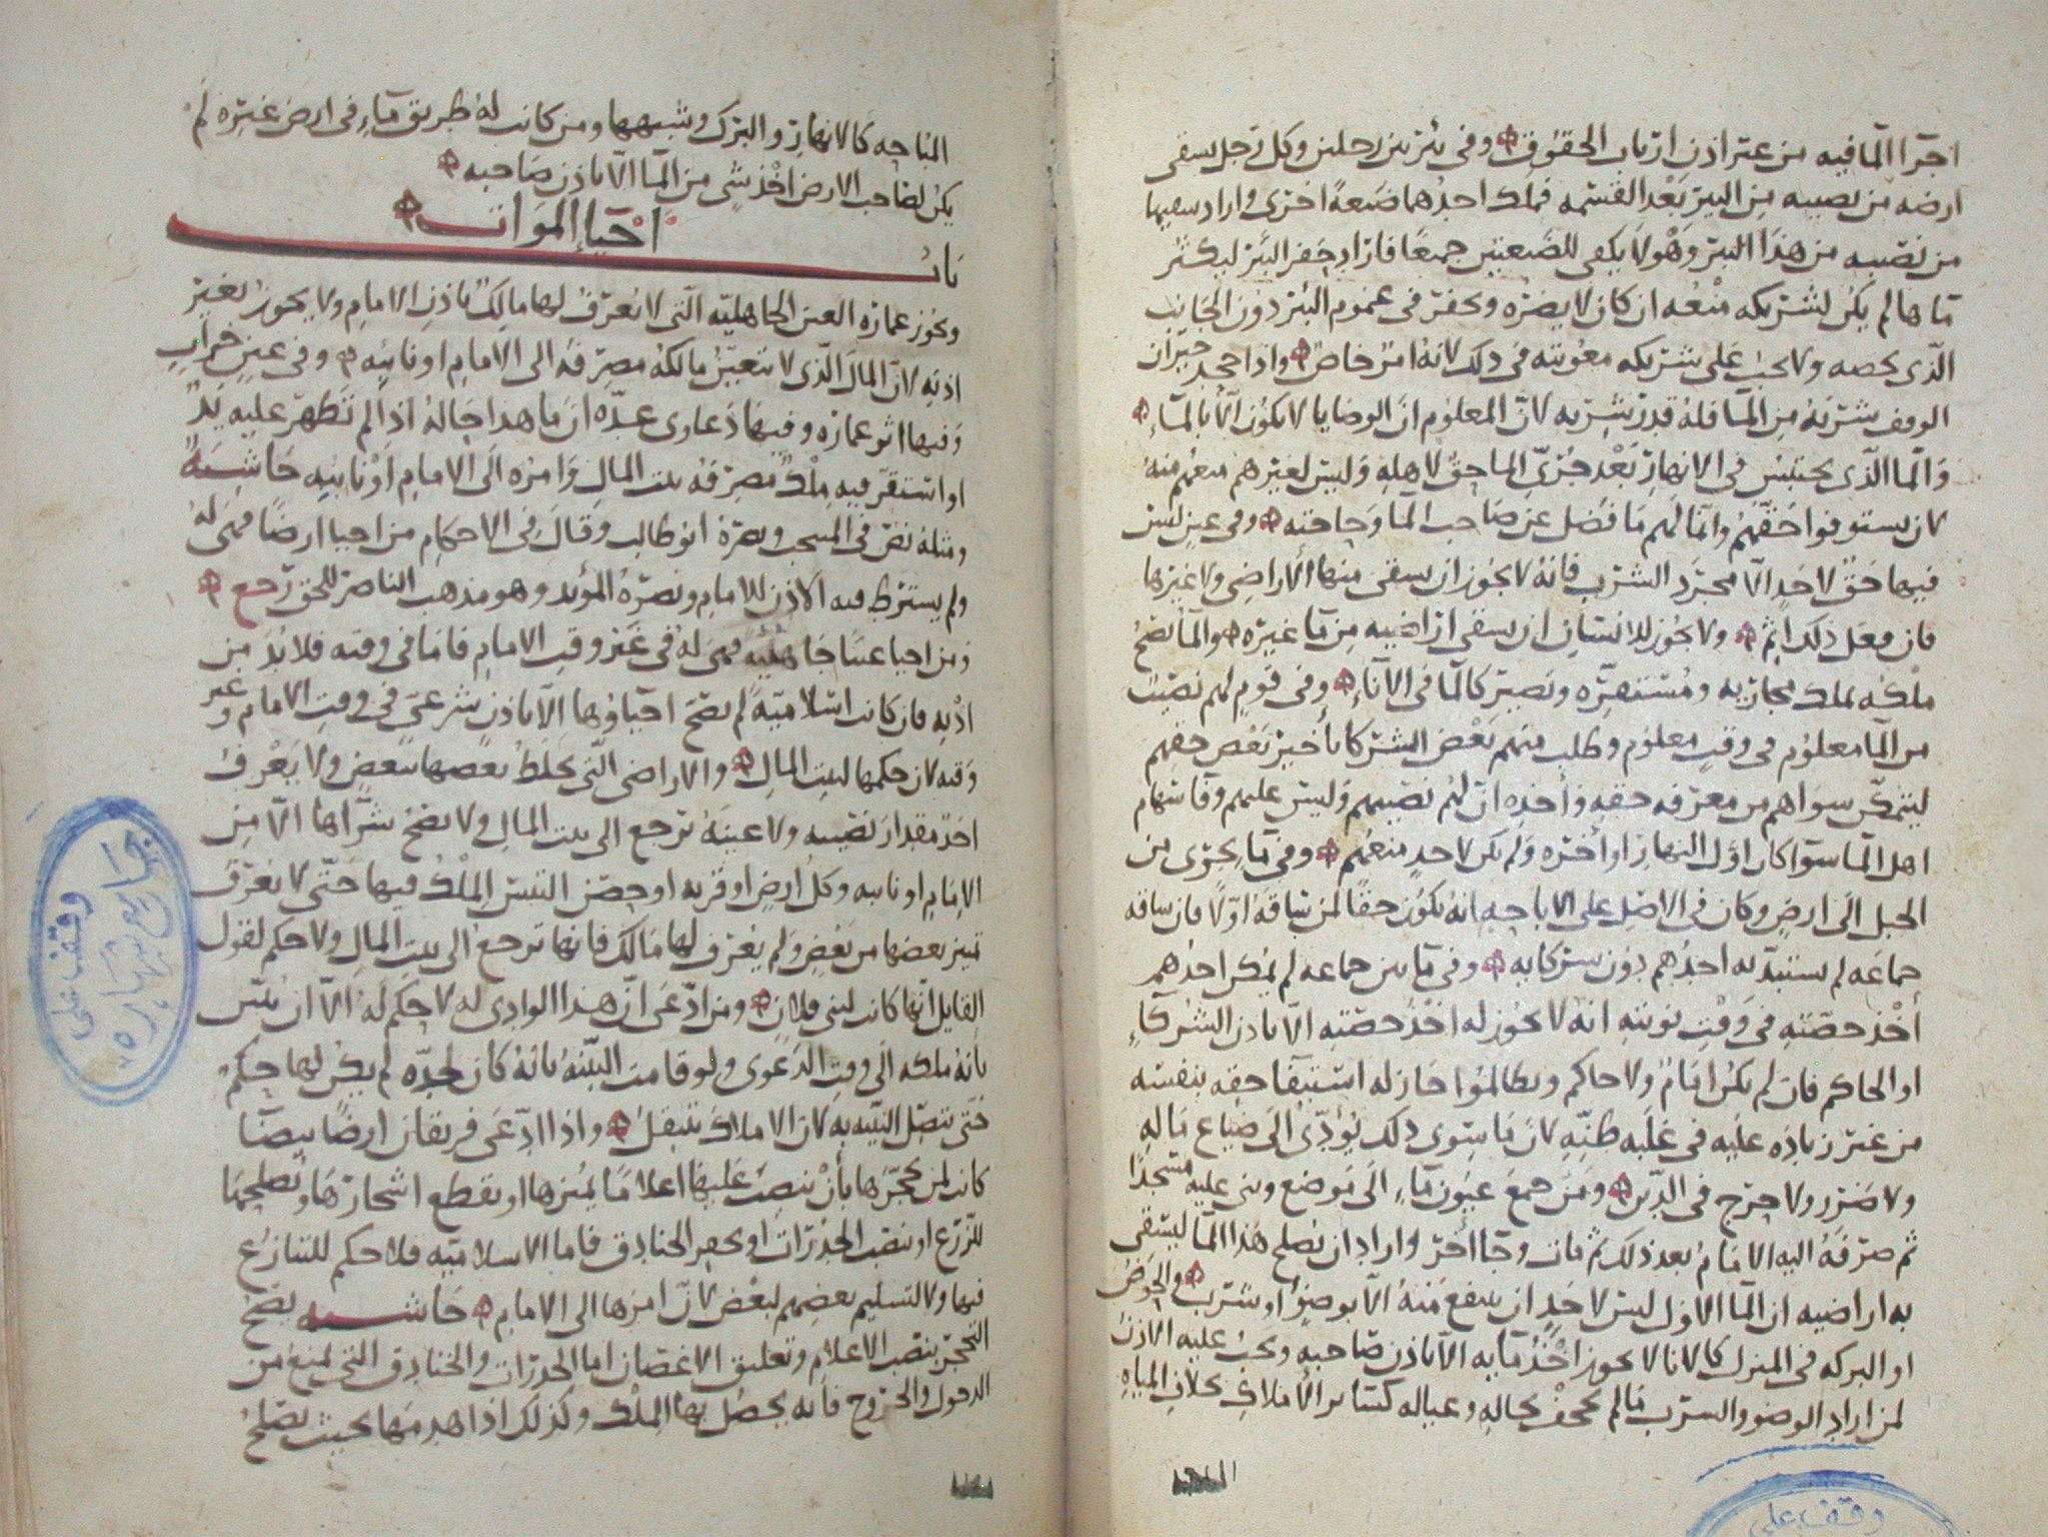 اجرا المافيه من غير اذن ارباب الحقوق وفي بئر بين رجلين وكل رجل يسقي
ارضه من نصيبه من البير بعد القسمه فملك احدهما ضيعة اخرى واراد سقيها
من نصيبه من هذا البير وهو لا يكفي للضيعتين جميعا فاراد حفر البئر ليكثر
ماها لم يكن لشريكه منعه ان كان لا يضره ويحفر في عموم البئر دون الجانب
الذي يخصه ولا يجب على شريكه معونته في ذلك لانه امر خاص واذا جيران
الوقف شربه من الما فله قدر شربه لان المعلوم ان الوصايا لا يكون الا بالماء
والما الذي يحتبس في الانهار بعد جري الما حق لاهله وليس لغيرهم منعهم منه
لان يستوفوا حقهم وانما لهم ما فضل عن صاحب الما وحاجته وفي عين ليس
فيها حق لاحد الا مجرد الشرب فانه لا يجوز ان يسقى منها الاراضي ولا غيرها
فان فعل ذلك اثم ولا يجوز للانسان ان يسقي اراضيه من ما غيره والما يصح
ملكه بملك مجاريه ومستقره ويصير كالما في الاناء وفي قوم لهم نصيب
من الما معلوم في وقت معلوم وطلب منهم بعض الشركا تأخير بعض حقهم
ليتمكن سواهم من معرفه حقه واخذه ان لهم نصيبهم وليس عليهم وفا سهام
اهل الما سوا كان اول النهار او اخره ولم يكن لاحد منعهم وفي ما يجري من
الجبل الى ارض وكان في الاصل على الاباحه انه يكون حقا لمن ساقه اولا فان ساقه
جماعه لم يستبد به احدهم دون شركايه وفي ما بين جماعه لم يمكن احدهم
أخذ حصته في وقت نوبته انه لا يجوز له اخذ حصته الا باذن الشركاء
او الحاكم فان لم يكن امام ولا حاكم وتظالموا جاز له استيفا حقه بنفسه
من غير زياده عليه في غلبه ظنه لان ما سوى ذلك يؤدي الى ضياع ماله
ولا ضرر ولا حرج في الدين ومن جمع عيون ماء الى موضع وبنى عليه مسجدا
ثم صرفه اليه الامام بعد ذلك ثم مات وجا آخر واراد ان يصلح هذا الما ليسقي
به اراضيه ان الما الاول ليس لاحد ان ينتفع منه الا بوضؤ او شرب والحوض
او البركه في المنزل كالانا لا يجوز اخذ مايه الا باذن صاحبه ويجب عليه الاذن
لمن اراد الوضو والشرب مالم يجحف بحاله وعياله كساير الاملاك بخلاف المياه
المباحه كالانهار والبرك وشبهها ومن كانت له طريق ماء في ارض غيره لم
يكن لصاحب الارض اخذ شي من الما الا باذن صاحبه
باب احيا الموات
ويجوز عماره العين الجاهليه التي لا يعرف لها مالك باذن الامام ولا يجوز بغير
اذنه لان المال الذي لا يتعين مالكه مصرفه الى الامام او نائبه وفي عين خراب
وفيها اثر عماره وفيها دعاوى عده ان ما هذا حاله اذا لم تظهر عليه يد
او استقر فيه ملك مصرفه بيت المال وامره الى الامام او نائبه حاشية
ومثله نص في المنتخب ونصره ابو طالب وقال في الاحكام من احيا ارضا فهي له
ولم يشترط فيه الاذن للامام ونصره المؤيد وهو مذهب الناصر للحق رجع
ومن احيا عينا جاهليه فهي له في غير وقت الامام فاما في وقته فلا بد من
اذنه فان كانت اسلاميه لم يصح احياؤها الا باذن شرعي في وقت الامام وغير
وقته لان حكمها لبيت المال والاراضي التي يخلط بعضها ببعض ولا يعرف
احد مقدار نصيبه ولا عينه ترجع الى بيت المال ولا يصح شراها الا من
الامام او نايبه وكل ارض او قريه او حصن التبس الملك فيها حتى لا يعرف
تميز بعضها من بعض ولم يعرف لها مالك فانها ترجع الى بيت المال ولا حكم لقول
القايل انها كانت لبني فلان ومن ادعى ان هذا الوادي له لا حكم له الا ان يبين
بانه ملكه الى وقت الدعوى ولو قامت البينه بانه كان لجده لم يكن لها حكم
حتى تتصل البينه به لان الاملاك تنتقل واذا ادعى فريقان ارضا بيضا
كانت لمن تحجرها بأن ينصب عليها اعلاما يميزها او يقطع اشجارها ويصلحها
للزرع او ينصب الجدرات او يحفر الخنادق فاما الاسلاميه فلا حكم للتنازع
فيها ولا لتسليم بعضهم لبعض لان امرها الى الامام حاشيه يصح
التحجر بنصب الاعلام وتعليق الاغصان اما الجدرات والخنادق التي تمنع من
الدخول والخروج فانه يحصل بها الملك وكذلك اذا هدمها بحيث تصلح
وقف على
جامع شهاره
وقف على